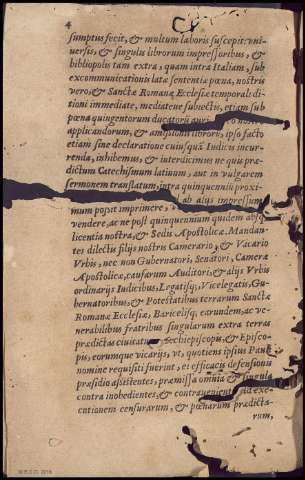 4
sumptus fecit, & multum laboris suscepit: vni-
uersis, & singulis librorum impressoribus, &
bibliopolis tam extra, quam intra Italiam, sub
excommunicationis latæ sententiæ pœna, nostris
vero, & Sanctæ Romanæ Ecclesiæ temporali di-
tioni immediate, mediateve subiectis, etiam sub
pœna quingentorum ducatorum auri
applicandorum, & amissionis librorū, ipso facto
etiam sine declaratione cuiusquā Iudicis incur-
renda, inhibemus, & interdicimus ne quis præ-
dictum Catechismum latinum, aut in vulgarem
sermonem translatum, intra quinquennium proxi-
ab alijs impressum
mum possit imprimere,
vendere, ac ne post quinquennium quidem absq;
licentia nostra, & Sedis Apostolicæ. Mandan-
tes dilectis filijs nostris Camerario, & Vicario
Vrbis, nec non Gubernatori, Senatori, Cameræ
Apostolicæ, causarum Auditori, & alijs Vrbis
ordinarijs Iudicibus, Legatisq; Vicelegatis, Gu-
bernatoribus, & Potestatibus terrarum Sanctæ
Romanæ Ecclesiæ, Baricellisq; earundem, ac ve-
nerabilibus fratribus singularum extra terras
prædictas ciuitatum Archiepiscopis, & Episco-
pis, eorumque vicarijs, vt, quotiens ipsius Pauli
nomine requisiti fuerint, ei efficacis defensionis
præsidio assistentes, præmissa omnia & singula
contra inobedientes, & contrauenientes ad exe-
cutionem censurarum, & pœnarum prædicta-
rum,